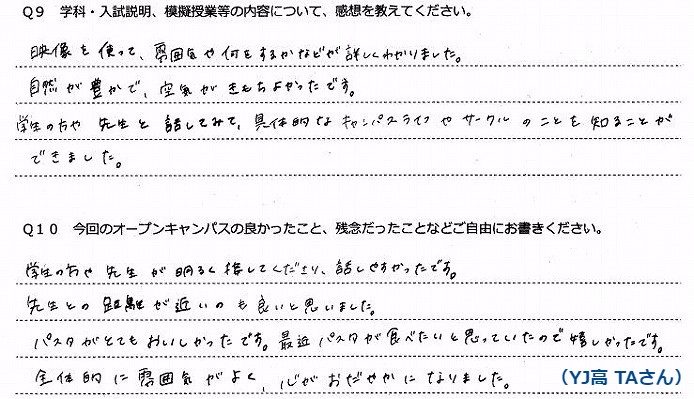 Q9 学科・入試説明、模擬授業等の内容について、感想を教えてください。
映像を使って、雰囲気や何をするかなどが詳しくわかりました。
自然が豊かで、空気がきもちよかったです。
学生の方や先生と話してみて、具体的なキャンパスライフやサークルのことを知ることが
できました。
Q10 今回のオープンキャンパスの良かったこと、残念だったことなどご自由にお書きください。
学生の方や先生が明るく接してくださり、話しやすかったです。
先生との距離が近いのも良いと思いました。
パスタがとてもおいしかったです。最近パスタが食べたいと思っていたので嬉しかったです。
全体的に雰囲気がよく、心がおだやかになりました。
（YJ高 TAさん）